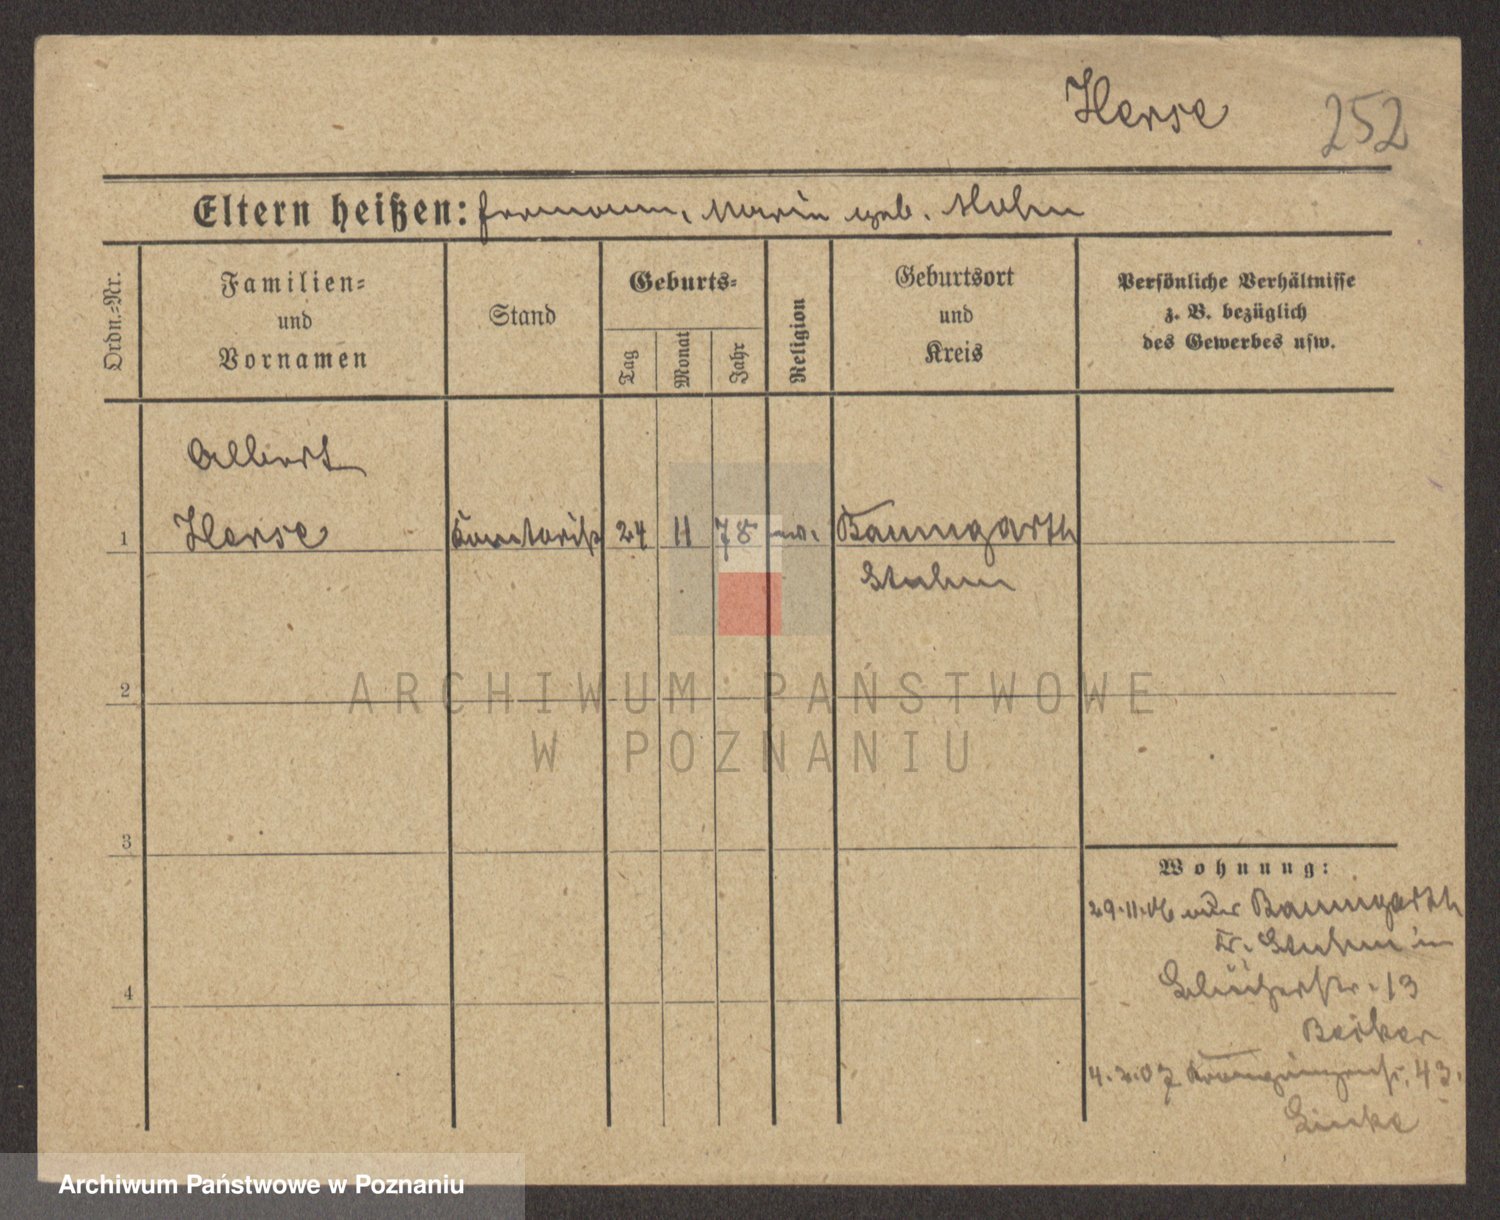 Herse 252
Eltern heißen: Hermann, Marie geb. Hohn
Ordn.-Nr.
Familien-
und
Vornamen
Stand
Geburts-
Tag
Monat
Jahr
Religion
Geburtsort
und
Kreis
Persönliche Verhältnisse
z. B. bezüglich
des Gewerbes usw.
Albert
1 Herse Kontorist 24 11 78 ev. Baumgarth
Stuhm
2
3
4
Wohnung:
29.11.06 aus Baumgarth
Kr. Stuhm in
Blücherstr. 13
Becker
4.2.07 43.
ARCHIWUM PAŃSTWOWE
W POZNANIU
Archiwum Państwowe w Poznaniu